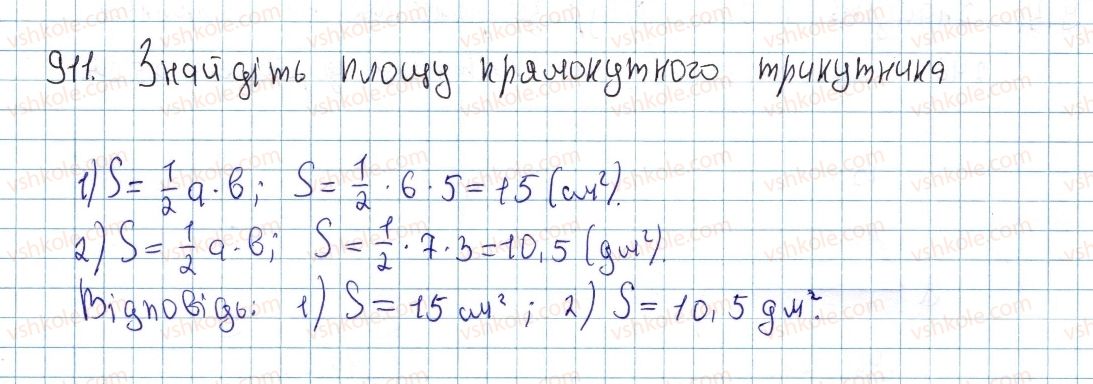 911. Знайдіть площу прямокутного трикутника
1) S = 1/2 a · b; S = 1/2 · 6 · 5 = 15 (см²).
2) S = 1/2 a · b; S = 1/2 · 7 · 3 = 10,5 (дм²).
Відповідь: 1) S = 15 см²; 2) S = 10,5 дм².